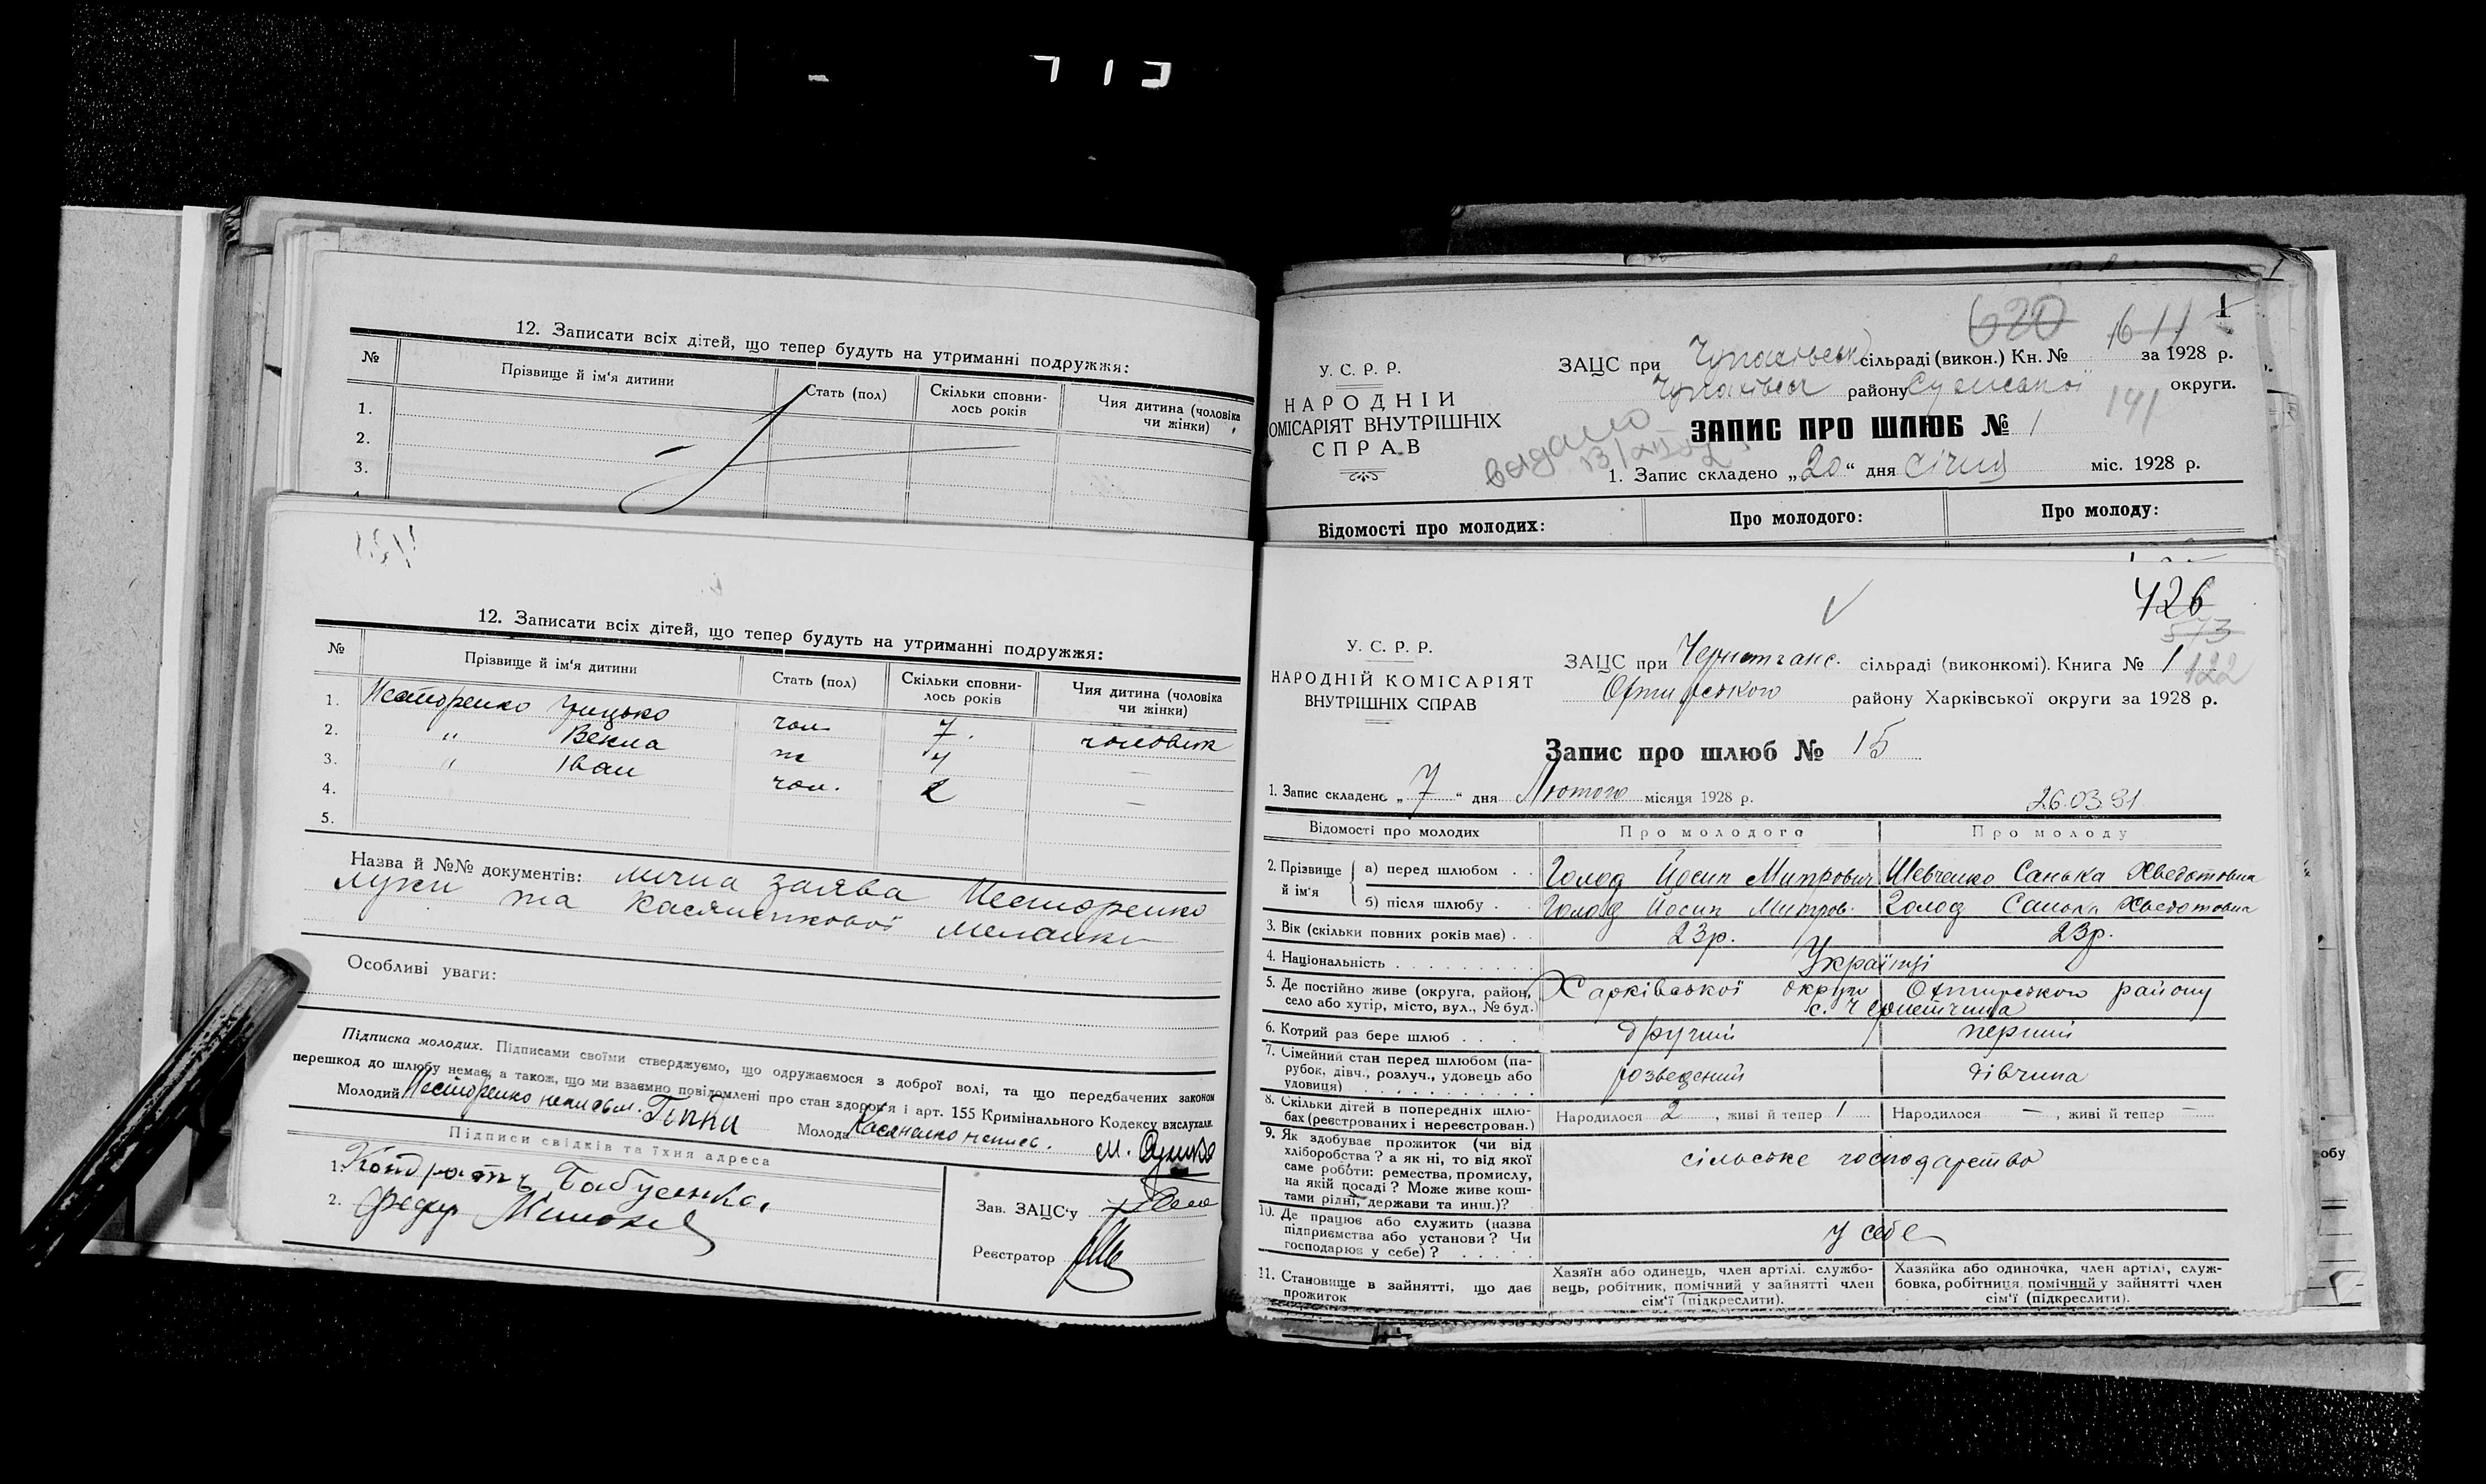 12. Записати всіх дітей, що тепер будуть на утриманні подружжя:
№ Прізвище й ім'я дитини Стать (пол) Скільки сповнилось років Чия дитина (чоловіка чи жінки)
1.
2.
3.
12. Записати всіх дітей, що тепер будуть на утриманні подружжя:
№ Прізвище й ім'я дитини Стать (пол) Скільки сповни-
лось років Чия дитина (чоловіка
чи жінки)
1. Несторенко Грицько чол. 7. чоловік
2. " Векла ж 4 —
3. " Іван чол. 2 —
4.
5.
Назва й №№ документів: лична заява Несторенко
Луки та Касяненкової Меланки
Особливі уваги:
Підписка молодих. Підписами своїми стверджуємо, що одружаємося з доброї волі, та що передбачених законом
перешкод до шлюбу немає, а також, що ми взаємно повідомлені про стан здоров'я і арт. 155 Кримінального Кодексу вислухали.
Молодий Несторенко Молода Касяненко
Підписи свідків та їхня адреса
1. Кондратъ
2. Федір
Зав. ЗАЦС'у
Реєстратор
1
620 611
У. С. Р. Р.
НАРОДНІЙ
ОМІСАРІЯТ ВНУТРІШНІХ
СПРАВ
ЗАЦС при Чупахівськ сільраді (викон.) Кн. № за 1928 р.
Чупахівськ району Сумської округи.
141
видано
ЗАПИС ПРО ШЛЮБ № 1
1. Запис складено „20“ дня січня міс. 1928 р.
Відомості про молодих: Про молодого: Про молоду:
426
573
122
У. С. Р. Р.
НАРОДНІЙ КОМІСАРІЯТ
ВНУТРІШНІХ СПРАВ
ЗАЦС при сільраді (виконкомі). Книга № 1
Охтирського району Харківської округи за 1928 р.
Запис про шлюб № 15
1. Запис складено „7“ дня Лютого місяця 1928 р.
26.03.91
Відомості про молодих Про молодого Про молоду
2. Прізвище й ім'я а) перед шлюбом . . Голод Йосип Митрович Шевченко Санька Хведотовна
б) після шлюбу . Голод Йосип Митров. Голод Санька Хведотовна
3. Вік (скільки повних років має) . . 23р. 23р.
4. Національність . . . . . . . . . Українці
5. Де постійно живе (округа, район,
село або хутір, місто, вул., № буд.) Харківської округи Охтирського району
6. Котрий раз бере шлюб . . . . другий перший
7. Сімейний стан перед шлюбом (па-
рубок, дівч., розлуч., удовець або
удовиця) . . . . . . . . . розведений дівчина
8. Скільки дітей в попередніх шлю-
бах (реєстрованих і нереєстрован.) Народилося 2, живі й тепер 1 Народилося —, живі й тепер —
9. Як здобуває прожиток (чи від
хліборобства? а як ні, то від якої
саме роботи: ремества, промислу,
на якій посаді? Може живе кош-
тами рідні, держави та инш.)? сільське господарство
10. Де працює або служить (назва
підприємства або установи? Чи
господарює у себе)? . . . . . у себе
11. Становище в зайнятті, що дає
прожиток
Хазяїн або одинець, член артілі, службо-
вець, робітник, помічний у зайнятті член
сім'ї (підкреслити).
Хазяйка або одиночка, член артілі, служ-
бовка, робітниця, помічний у зайнятті член
сім'ї (підкреслити).
обу